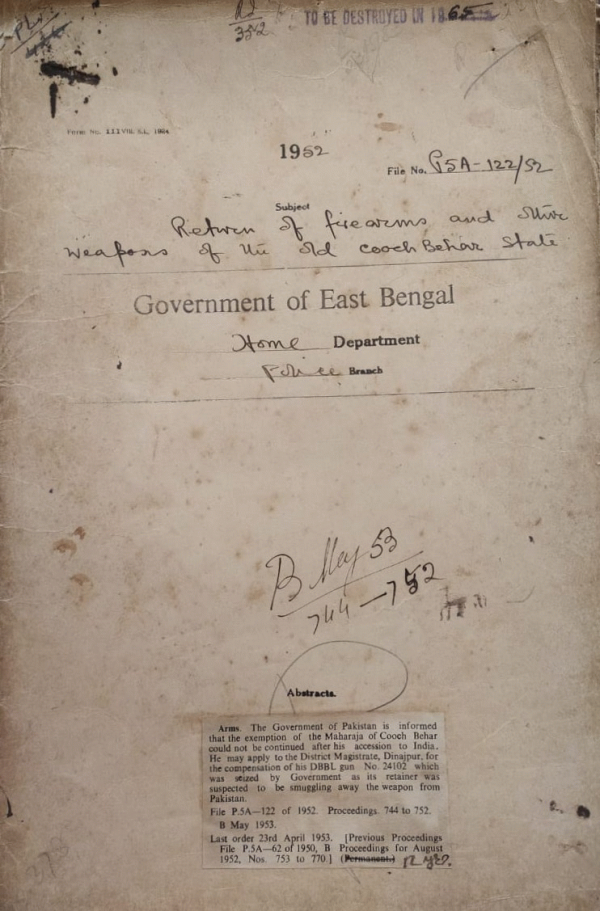 352
TO BE DESTROYED IN 1965
1952
File No. P5A-122/52
Subject
Return of firearms and other
weapons of the old Cooch Behar State
Government of East Bengal
Home Department
Police Branch
B May 53
744-752
Abstracts.
Arms. The Government of Pakistan is informed
that the exemption of the Maharaja of Cooch Behar
could not be continued after his accession to India.
He may apply to the District Magistrate, Dinajpur, for
the compensation of his DBBL gun No. 24102 which
was seized by Government as its retainer was
suspected to be smuggling away the weapon from
Pakistan.
File P.5A—122 of 1952. Proceedings. 744 to 752.
B May 1953.
Last order 23rd April 1953. [Previous Proceedings
File P.5A—62 of 1950, B Proceedings for August
1952, Nos. 753 to 770.] (Permanent.) 12 yrs.